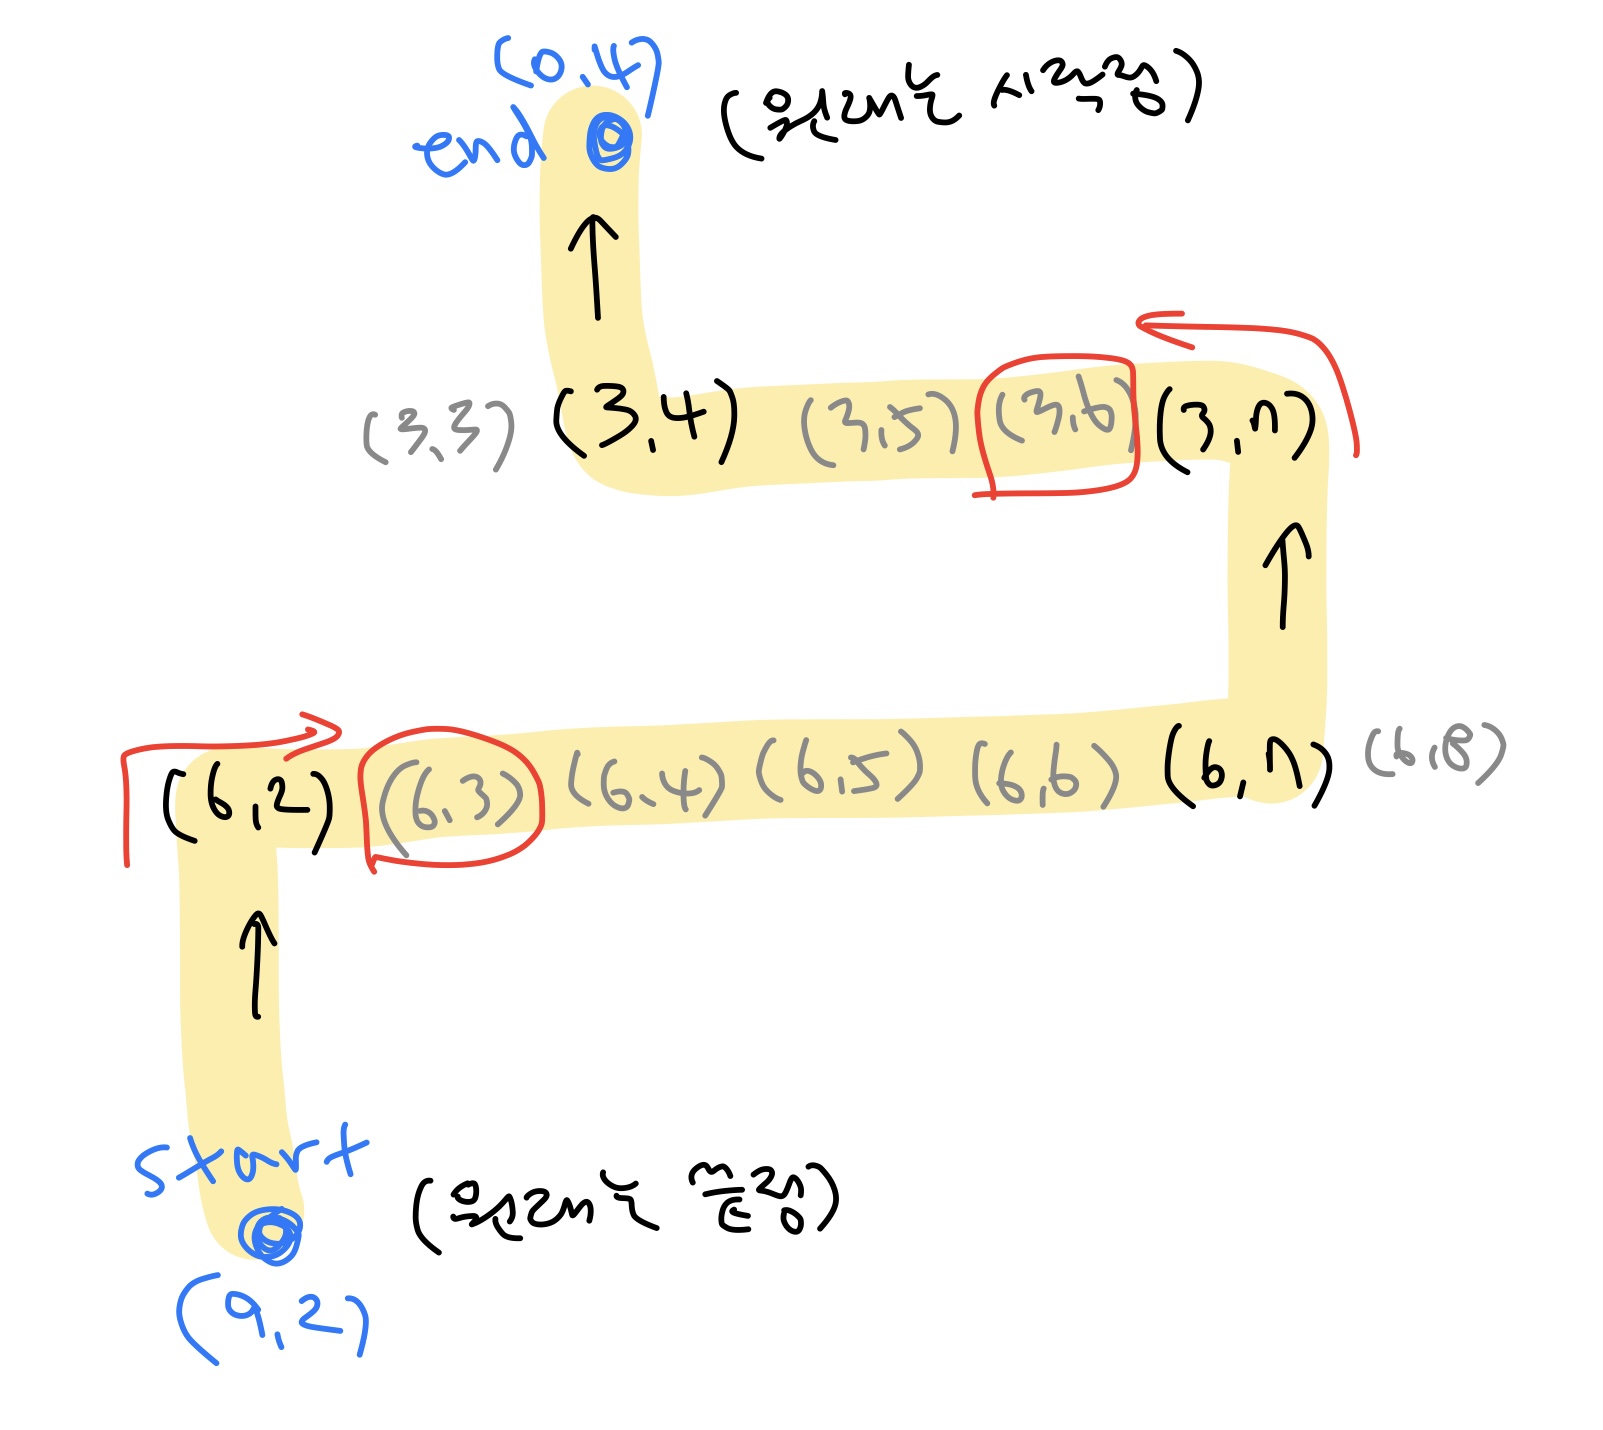 (0,4)
end
(원래는 시작점)
(3,3) (3,4) (3,5) (3,6) (3,7)
(6,2) (6,3) (6,4) (6,5) (6,6) (6,7) (6,8)
start
(원래는 끝점)
(9,2)